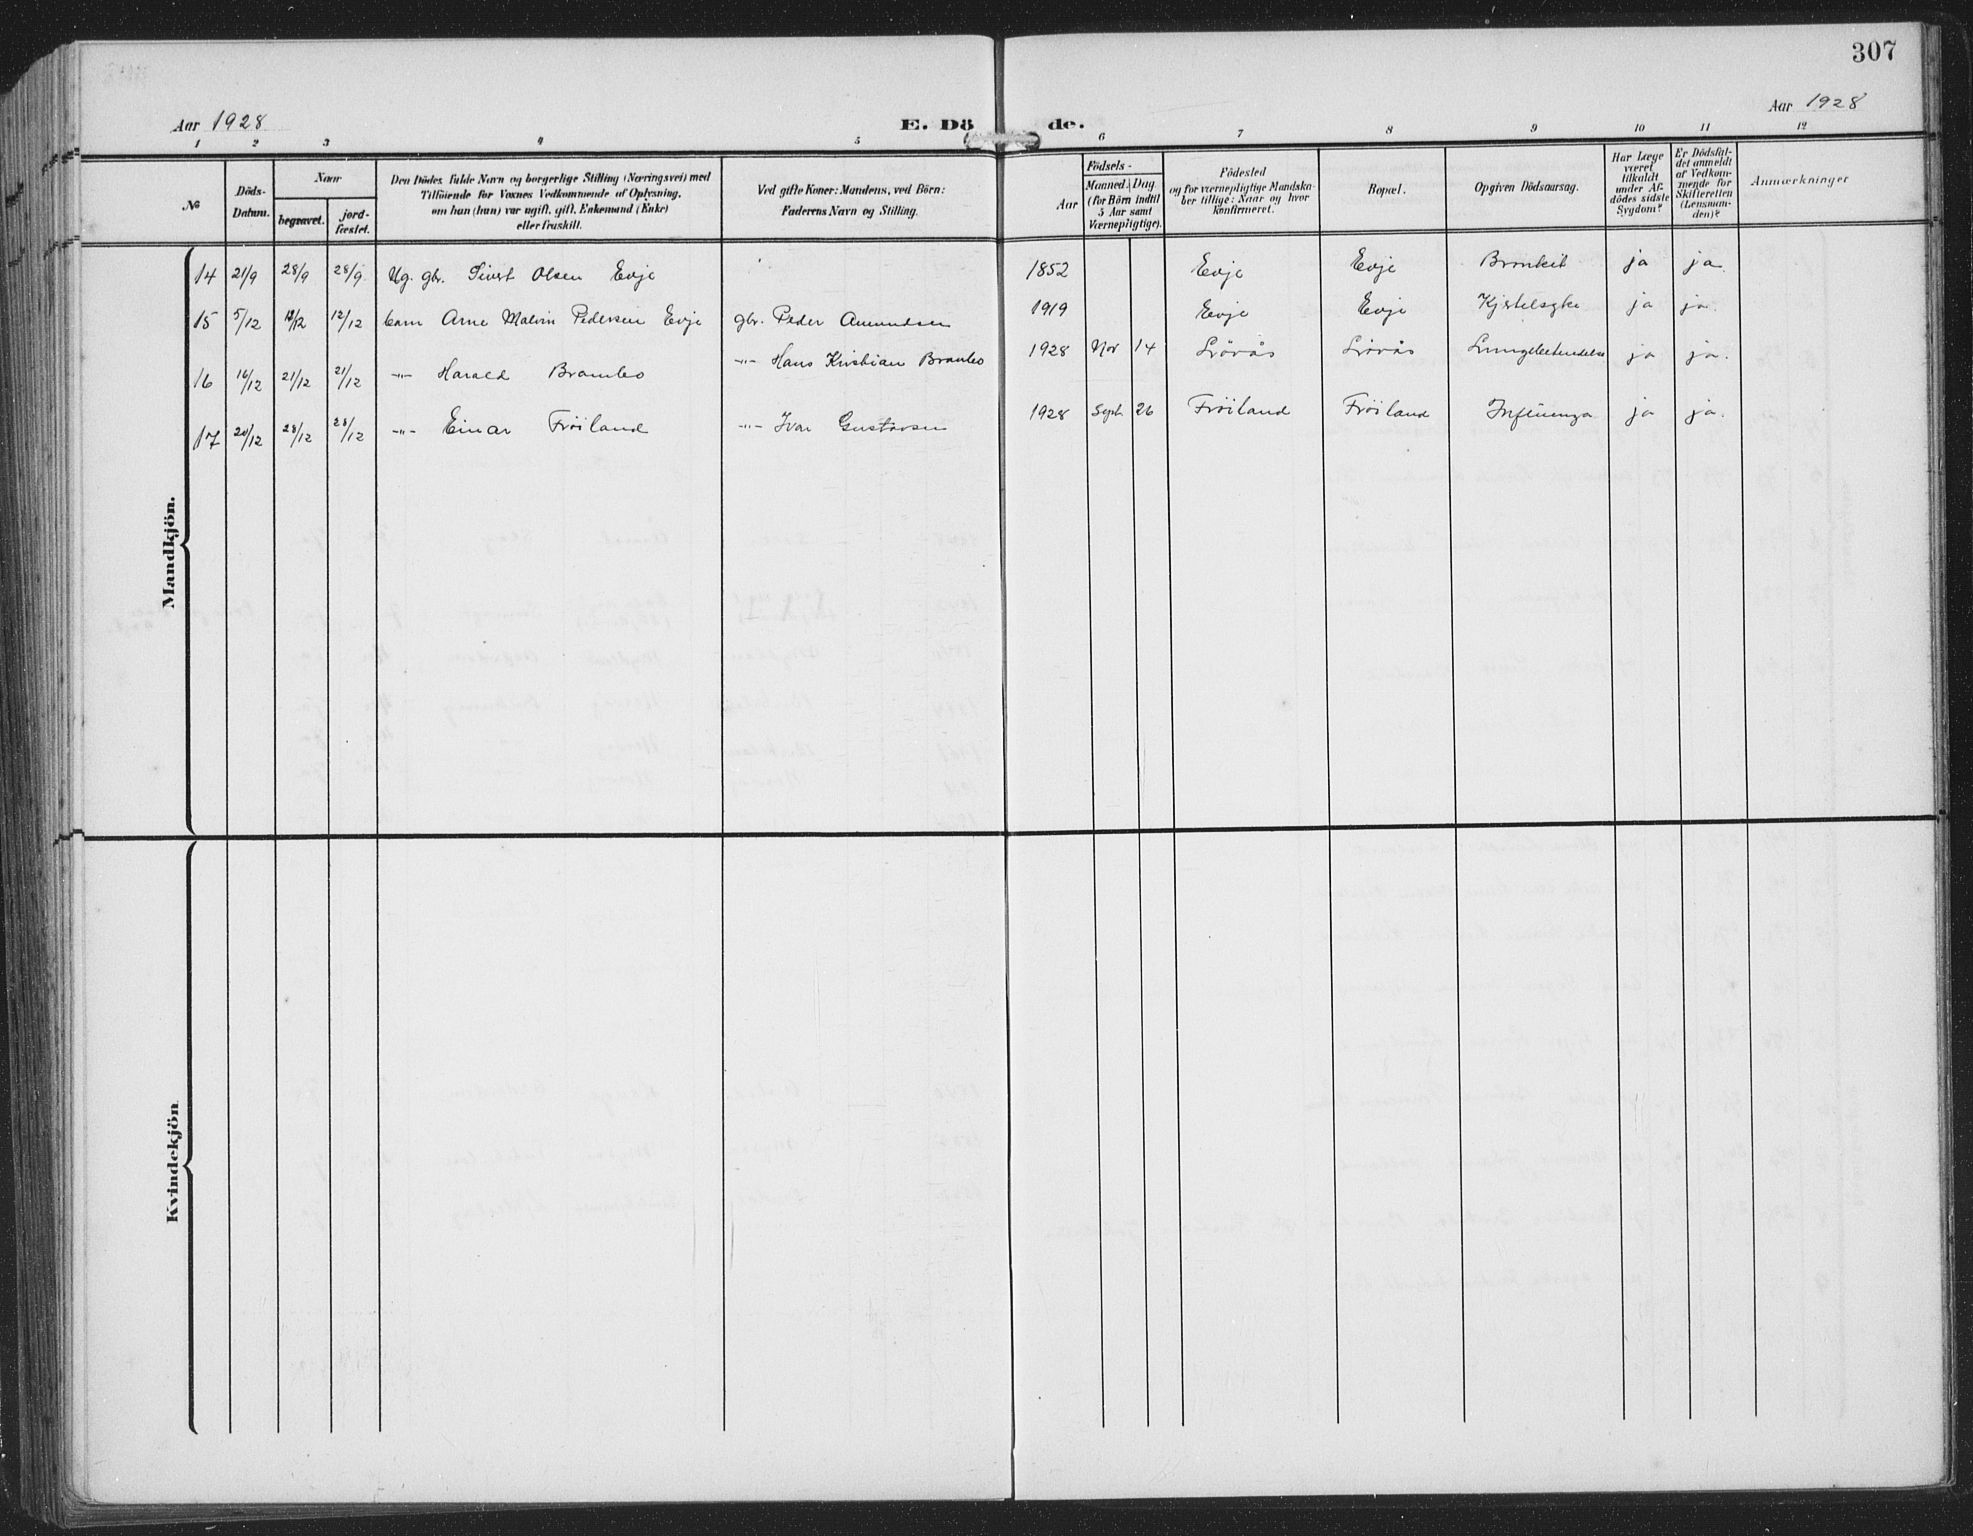 307
Aar 1928
E. Dö
de.
Aar 1928
1 2 3 4 5 6 7 8 9 10 11 12
№
Döds-
Datum.
Naar
begravet.
jord-
fæstet.
Den Dödes fulde Navn og borgerlige Stilling (Næringsvei) med
Tilföiende for Voxnes Vedkommende af Oplysning,
om han (hun) var ugift, gift, Enkemand (Enke)
eller fraskilt.
Ved gifte Koner: Mandens, ved Börn:
Faderens Navn og Stilling.
Födsels-
Aar
Maaned. Dag
(for Börn indtil
5 Aar samt
Værnepligtige).
Födested
og for værnepligtige Mandska-
ber tillige: Naar og hvor
Konfirmeret.
Bopæl.
Opgiven Dödsaarsag.
Har Læge
været
tilkaldt
under Af-
dödes sidste
Sygdom?
Er Dödsfal-
det anmeldt
af Vedkom-
mende for
Skifteretten
(Lensman-
den)?
Anmærkninger
Mandkjön.
14 21/9 28/9 28/9 Ug. gbr. Sivert Olsen Evje 1852 Evje Evje Bronkit ja ja.
15 5/12 12/12 12/12 barn Arne Malvin Pedersen Evje gbr. Peder Amundsen 1919 Evje Evje Kjertelsyke ja ja.
16 16/12 21/12 21/12 -"- Harald Brambo -"- Hans Kristian Brambo 1928 Nov 14 Lungebetendelse ja ja.
17 20/12 28/12 28/12 -"- Einar Fröiland -"- Ivar Gustavsen 1928 Sept. 26 Fröiland Fröiland Influenza ja ja.
Kvindekjön